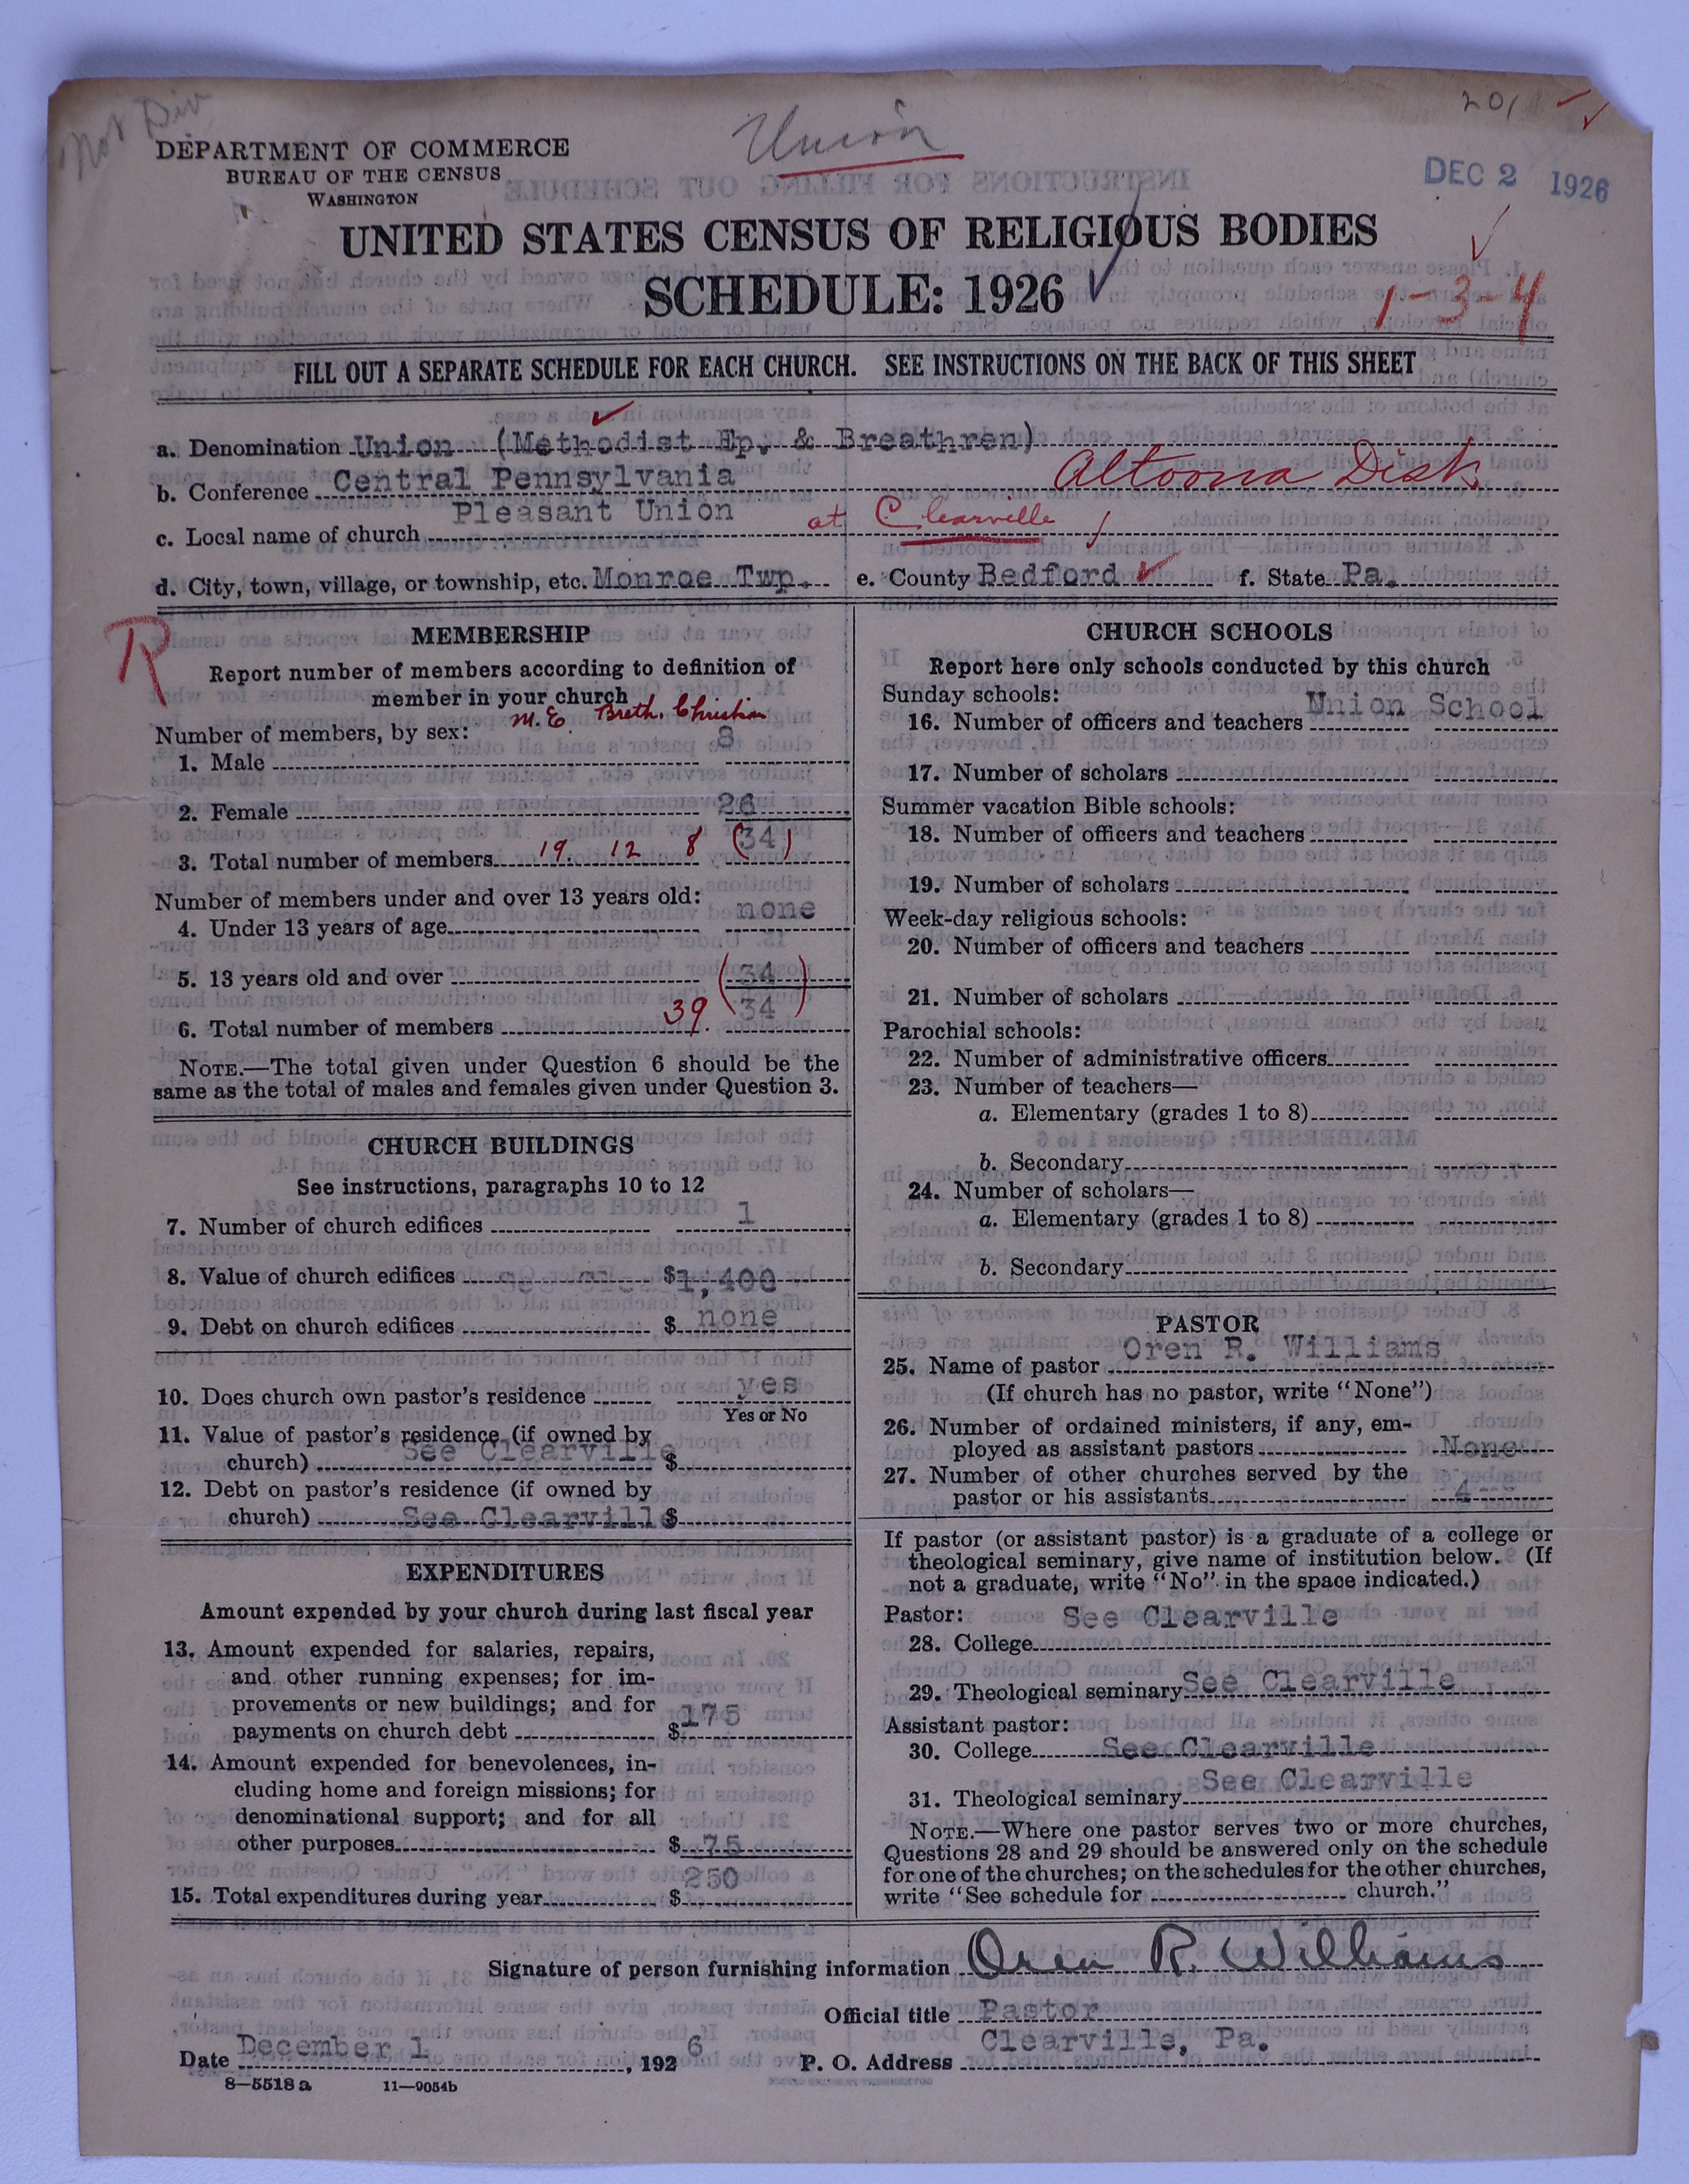 Not Div
Union
201
DEPARTMENT OF COMMERCE
BUREAU OF THE CENSUS
WASHINGTON
DEC 2 1926
UNITED STATES CENSUS OF RELIGIOUS BODIES
SCHEDULE: 1926
1-3-4
FILL OUT A SEPARATE SCHEDULE FOR EACH CHURCH. SEE INSTRUCTIONS ON THE BACK OF THIS SHEET
a. Denomination Union (Methodist Ep. & Breathren)
b. Conference Central Pennsylvania Altoona Dist
c. Local name of church Pleasant Union at Clearville
d. City, town, village, or township, etc. Monroe Twp. e. County Bedford f. State Pa.
R
MEMBERSHIP
Report number of members according to definition of
member in your church
M.E. Breth. Christian
Number of members, by sex:
1. Male 8
2. Female 26
3. Total number of members 19. 12 8 (34)
Number of members under and over 13 years old:
4. Under 13 years of age none
5. 13 years old and over (34)
6. Total number of members 39. 34
NOTE.—The total given under Question 6 should be the
same as the total of males and females given under Question 3.
CHURCH BUILDINGS
See instructions, paragraphs 10 to 12
7. Number of church edifices 1
8. Value of church edifices $1,400
9. Debt on church edifices $ none
10. Does church own pastor's residence yes
Yes or No
11. Value of pastor's residence (if owned by
church) See Clearville $
12. Debt on pastor's residence (if owned by
church) See Clearville $
EXPENDITURES
Amount expended by your church during last fiscal year
13. Amount expended for salaries, repairs,
and other running expenses; for im-
provements or new buildings; and for
payments on church debt $175
14. Amount expended for benevolences, in-
cluding home and foreign missions; for
denominational support; and for all
other purposes $ 75
15. Total expenditures during year $ 250
CHURCH SCHOOLS
Report here only schools conducted by this church
Sunday schools:
16. Number of officers and teachers Union School
17. Number of scholars
Summer vacation Bible schools:
18. Number of officers and teachers
19. Number of scholars
Week-day religious schools:
20. Number of officers and teachers
21. Number of scholars
Parochial schools:
22. Number of administrative officers
23. Number of teachers—
a. Elementary (grades 1 to 8)
b. Secondary
24. Number of scholars—
a. Elementary (grades 1 to 8)
b. Secondary
PASTOR
25. Name of pastor Oren R. Williams
(If church has no pastor, write "None")
26. Number of ordained ministers, if any, em-
ployed as assistant pastors None
27. Number of other churches served by the
pastor or his assistants 4
If pastor (or assistant pastor) is a graduate of a college or
theological seminary, give name of institution below. (If
not a graduate, write "No" in the space indicated.)
Pastor: See Clearville
28. College
29. Theological seminary See Clearville
Assistant pastor:
30. College See Clearville
31. Theological seminary See Clearville
NOTE.—Where one pastor serves two or more churches,
Questions 28 and 29 should be answered only on the schedule
for one of the churches; on the schedules for the other churches,
write "See schedule for church."
Signature of person furnishing information Oren R. Williams
Official title Pastor
Date December 1, 1926 P. O. Address Clearville, Pa.
8—5518 a 11—9054b